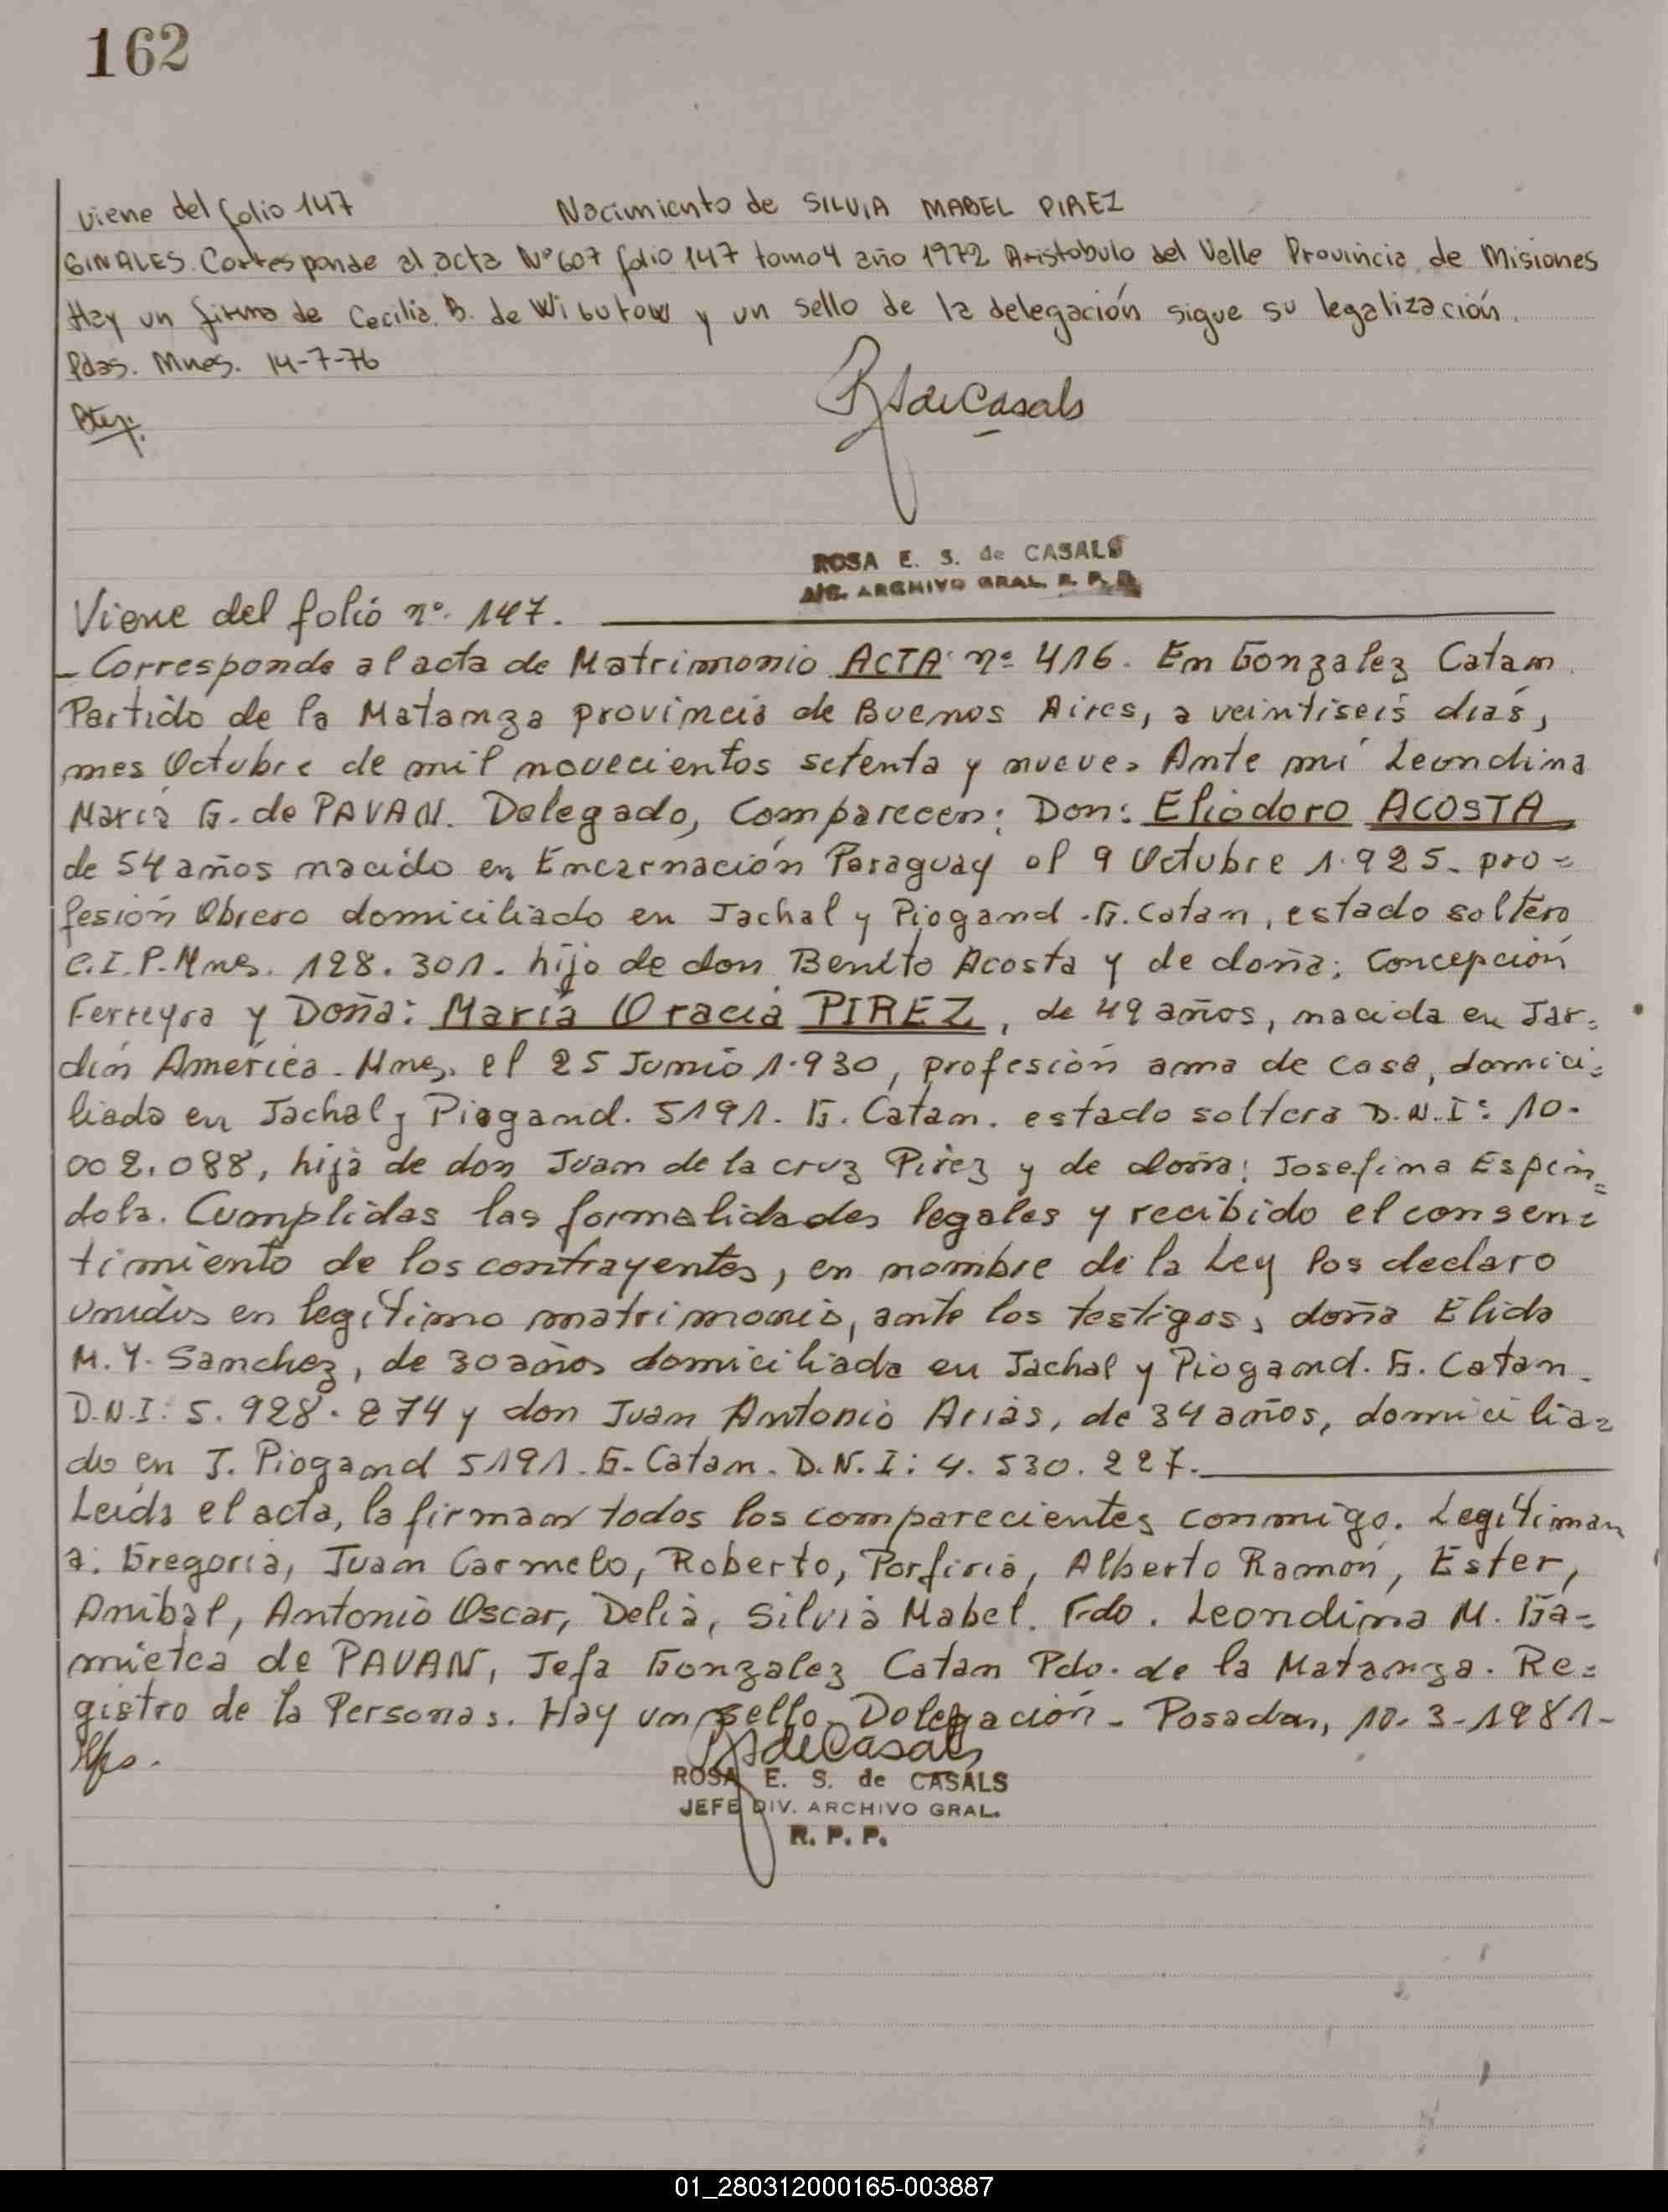 162
Viene del folio 147 Nacimiento de SILVIA MABEL PIREZ
GINALES. Corresponde al acta Nº 607 folio 147 tomo 4 año 1972 Aristobulo del Valle Provincia de Misiones
Hay un firma de Cecilia B. de Wibutow y un sello de la delegación sigue su legalización.
Pdas. Mnes. 14-7-76
RSdeCasals
ROSA E. S. de CASALS
ARCHIVO GRAL. R. P. P.
Viene del folio nº. 147.
- Corresponde al acta de Matrimonio ACTA nº 416. En Gonzalez Catam.
Partido de la Matanza provincia de Buenos Aires, a veintiseis dias,
mes Octubre de mil novecientos setenta y nueve. Ante mi Leondina
Maria G. de PAVAN. Delegado, Comparecen: Don: Eliodoro ACOSTA
de 54 años nacido en Encarnación Paraguay el 9 Octubre 1.925. pro=
fesión Obrero domiciliado en Jachal y Piogand. G. Catan, estado soltero
C.I.P. Mnes. 128.301. hijo de don Benito Acosta y de doña: Concepción
Ferreyra y Doña: María Oracia PIREZ, de 49 años, nacida en Jar=
dín América. Mnes. el 25 Junio 1.930, profesión ama de casa, domici=
liada en Jachal y Piogand. 5191. G. Catam. estado soltera D.N.I: 10.
002.088, hija de don Juan de la cruz Pirez y de doña: Josefina Espin=
dola. Cumplidas las formalidades legales y recibido el consen=
timiento de los contrayentes, en nombre de la Ley los declaro
unidos en legítimo matrimonio, ante los testigos, doña Elida
M. Y. Sanchez, de 30 años domiciliada en Jachal y Piogand. G. Catan.
D.N.I: 5.928.274 y don Juan Antonio Arias, de 34 años, domicilia=
do en J. Piogand 5191. G. Catan. D.N.I: 4.530.227.
Leida el acta, la firman todos los comparecientes conmigo. Legitiman
a: Gregoria, Juan Carmelo, Roberto, Porfiria, Alberto Ramón, Ester,
Anibal, Antonio Oscar, Delia, Silvia Mabel. Fdo. Leondina M. Ga=
mietea de PAVAN, Jefa Gonzalez Catan Pdo. de la Matanza. Re=
gistro de la Personas. Hay un sello Delegación - Posadas, 10-3-1981-
RSdeCasals
ROSA E. S. de CASALS
JEFE DIV. ARCHIVO GRAL.
R. P. P.
01_280312000165-003887